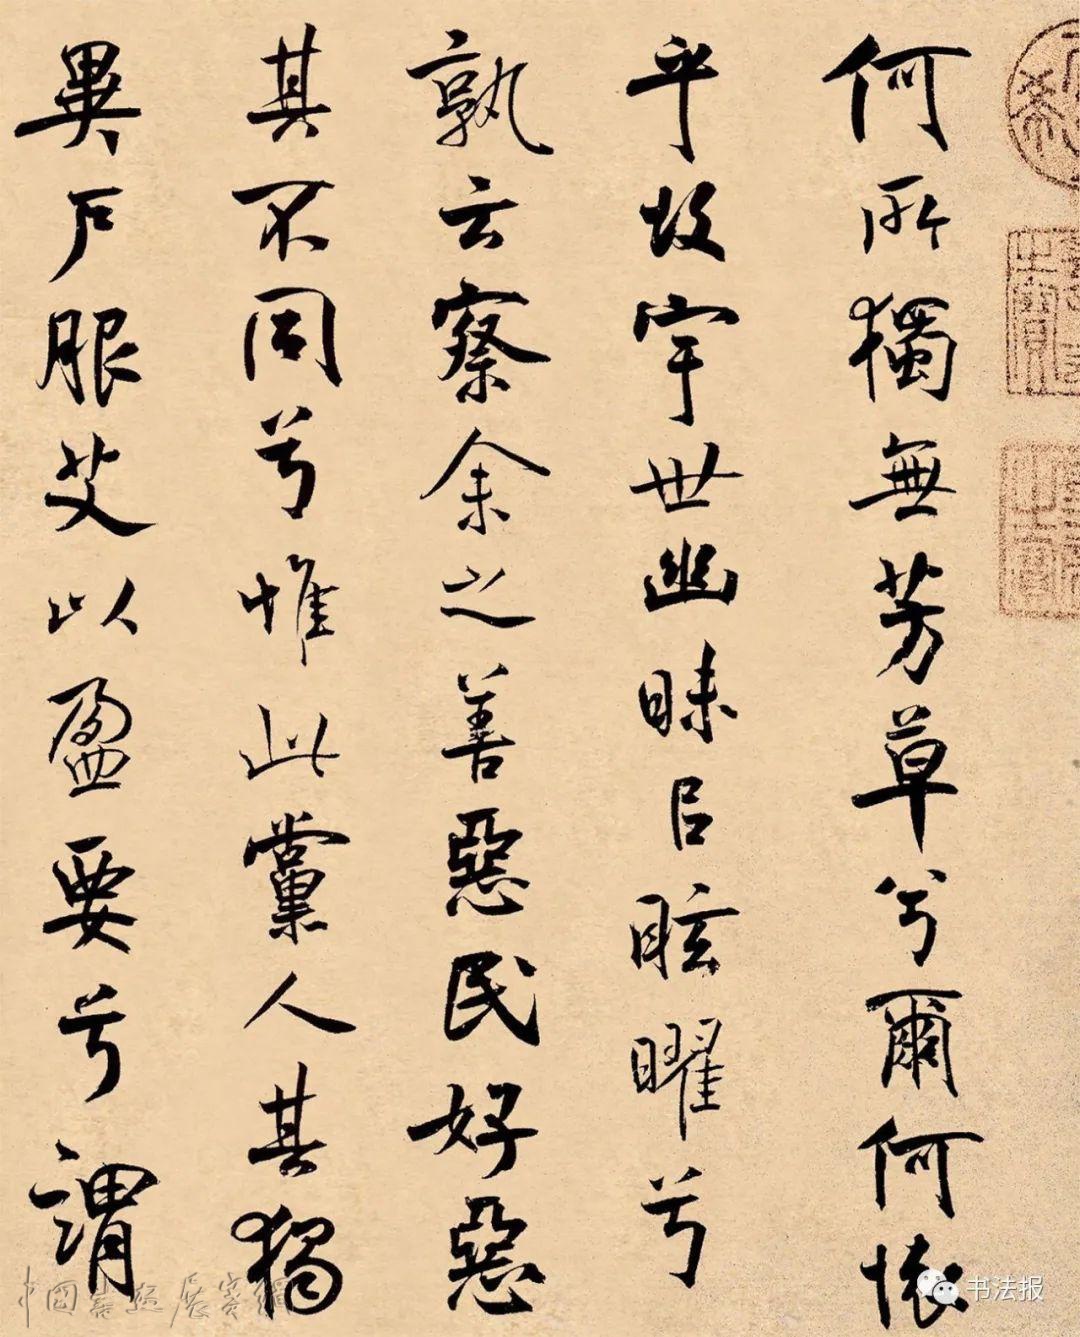 何所獨無芳草兮爾何懷
乎故宇世幽昧以眩曜兮
孰云察余之善惡民好惡
其不同兮惟此黨人其獨
異戶服艾以盈要兮謂
中國書法展賽網
书法报